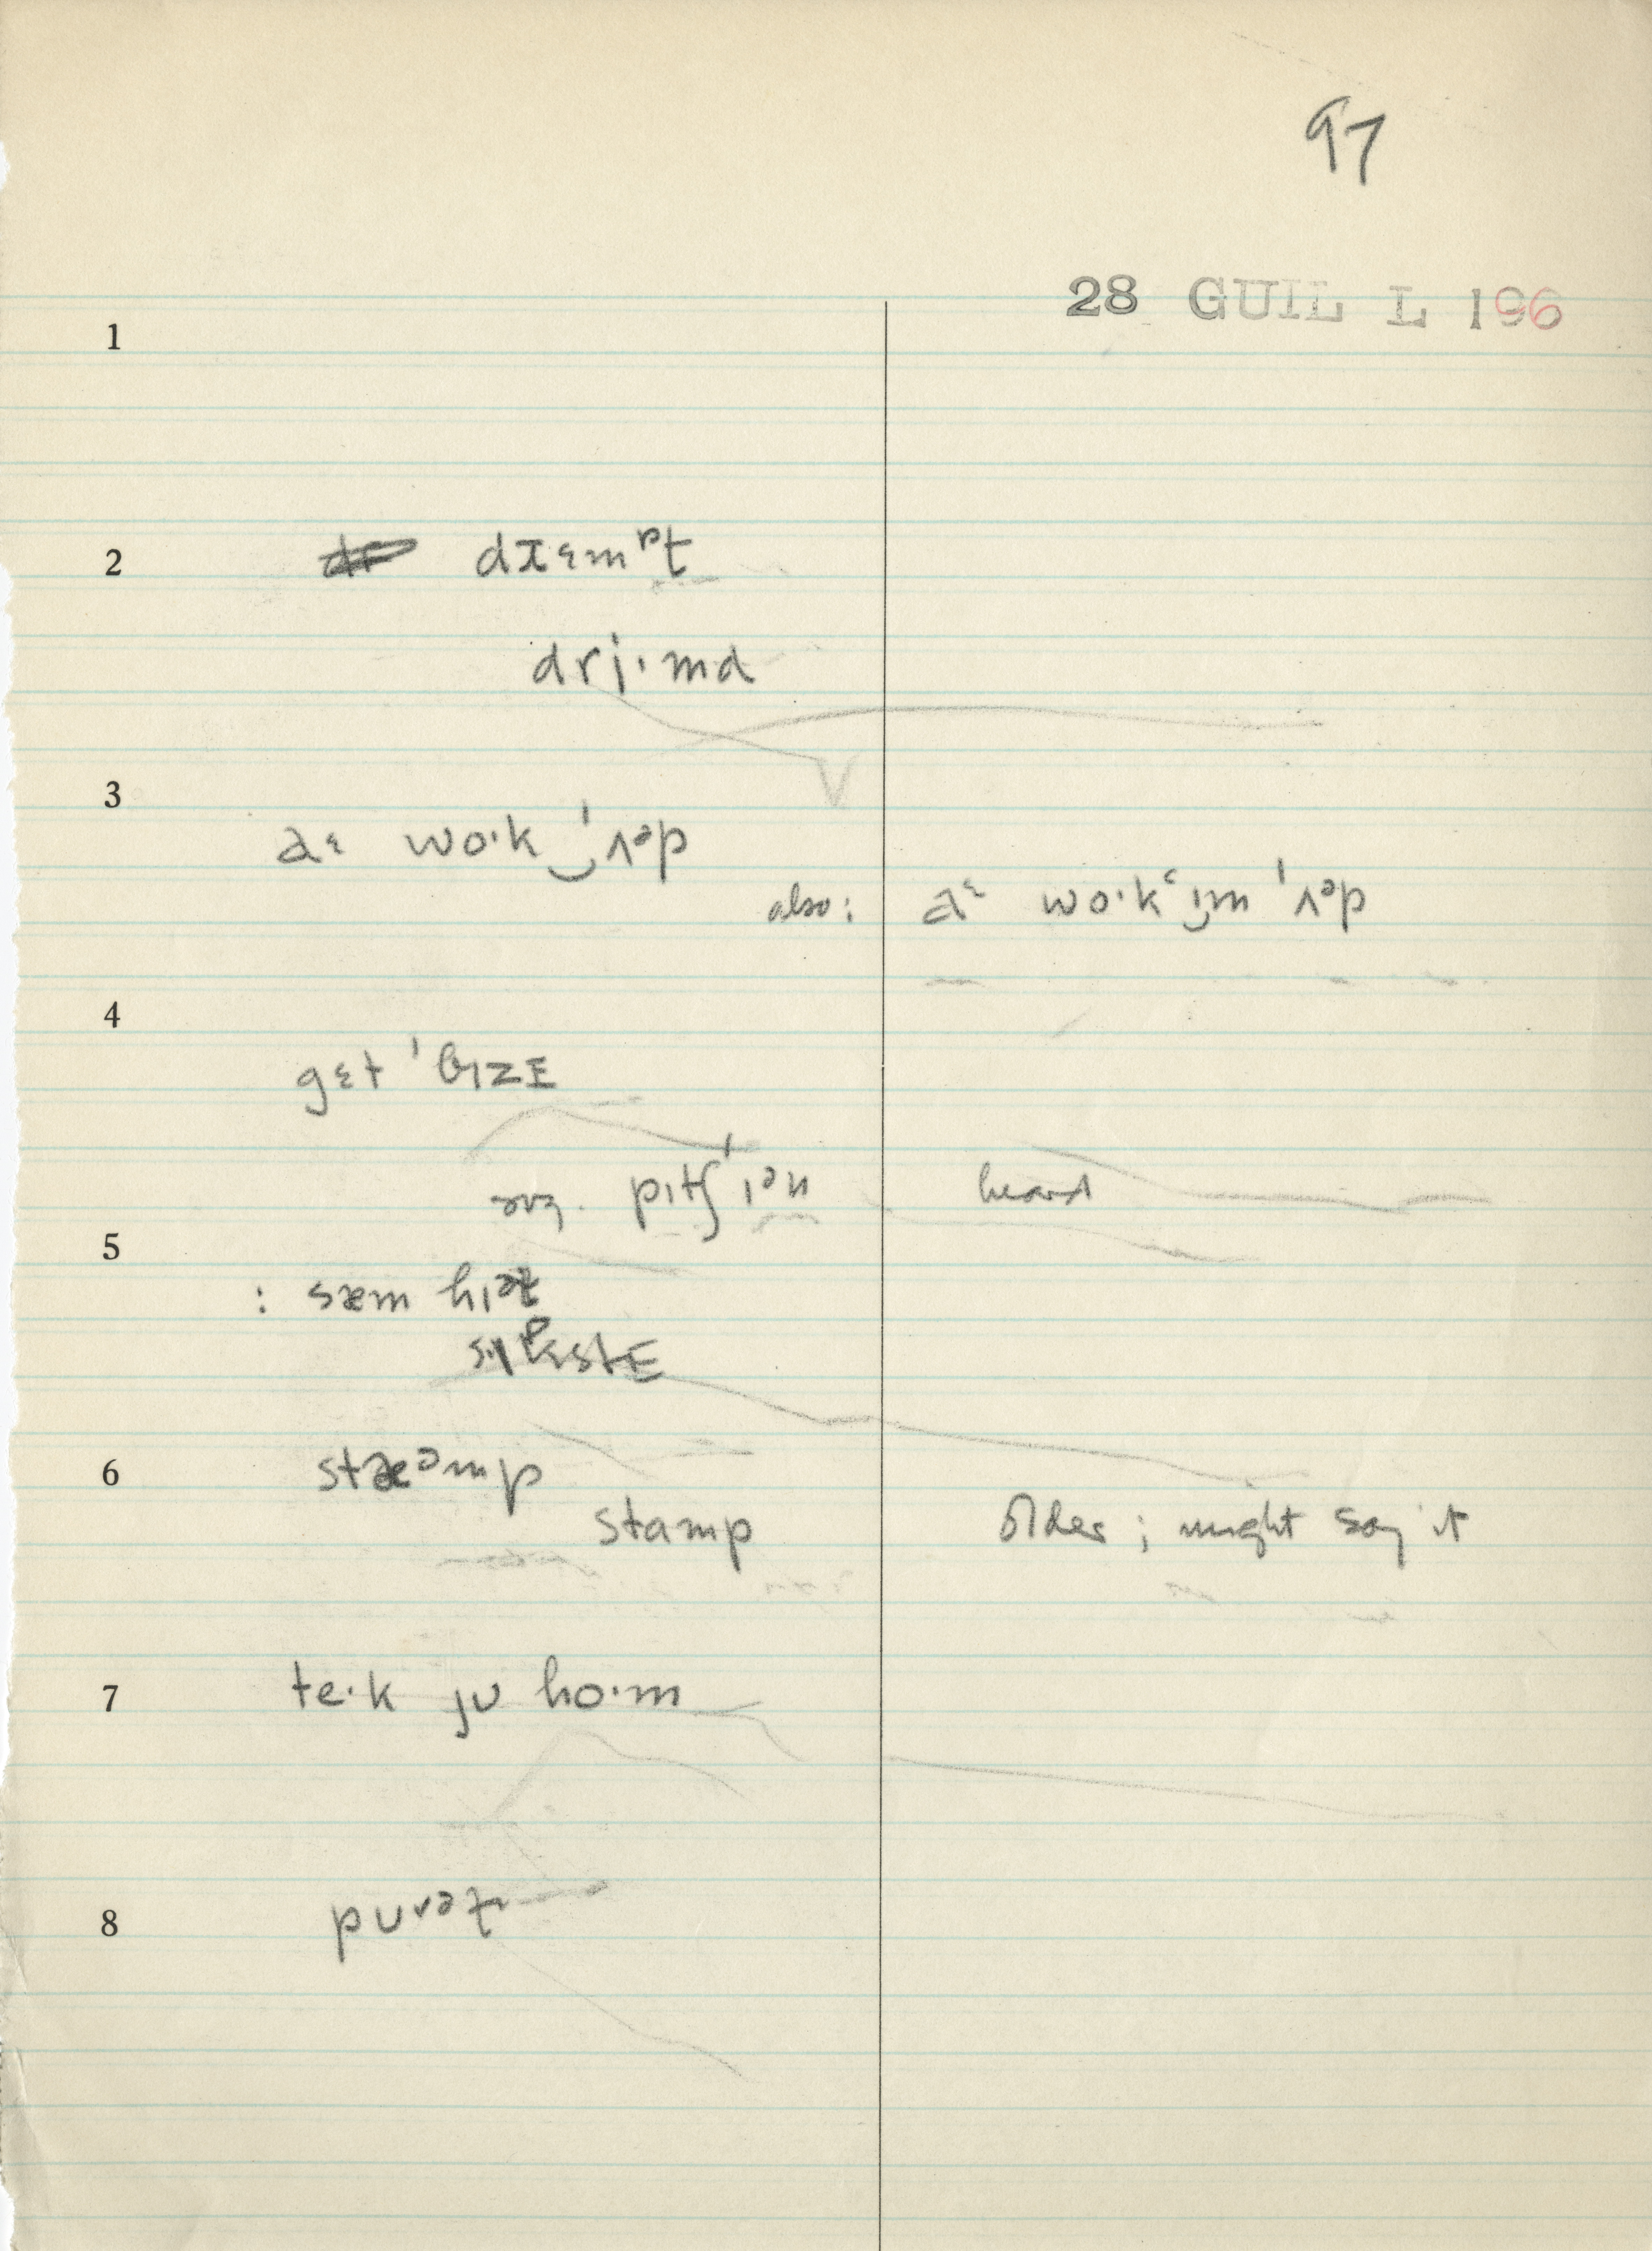 97
28 GUIL L 196
1
2 dɪɛmᵖt
drj·md
3
aɛ wo·k‿'ʌᵊp
also: aᵋ wo·kʿɪm 'ʌᵊp
4
gɛt 'bɪzE
pɪtʃ 'ɪən heard
5
: sæm hɪət
6 stæᵊmp
stamp older; might say it
7 te·k jʊ ho·m
8 pʊrət